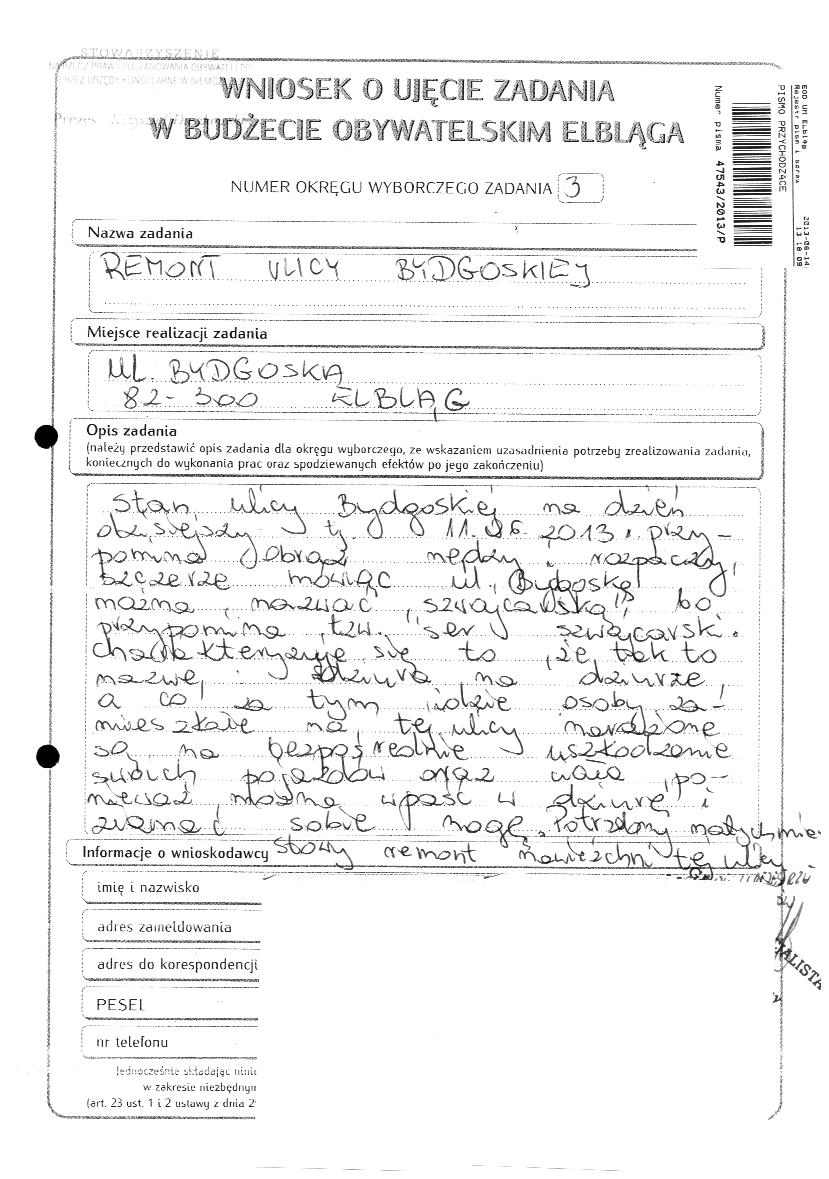 STOWARZYSZENIE
WNIOSEK O UJĘCIE ZADANIA
W BUDŻECIE OBYWATELSKIM ELBLĄGA
NUMER OKRĘGU WYBORCZEGO ZADANIA 3
EOD UM Elbląg
Rejestr pism i spraw
2013-06-14
13:18:09
PISMO PRZYCHODZĄCE
Numer pisma 47543/2013/P
Nazwa zadania
REMONT ULICY BYDGOSKIEJ
Miejsce realizacji zadania
UL. BYDGOSKA
82-300 ELBLĄG
Opis zadania
(należy przedstawić opis zadania dla okręgu wyborczego, ze wskazaniem uzasadnienia potrzeby zrealizowania zadania,
koniecznych do wykonania prac oraz spodziewanych efektów po jego zakończeniu)
Stan ulicy Bydgoskiej na dzień
dzisiejszy tj. 11.06.2013r. przy-
pomina obraz nędzy i rozpaczy,
szczerze mówiąc ul. Bydgoską
można nazwać "szwajcarską", bo
przypomina tzw. ser szwajcarski.
Charakteryzuje się to, że tak to
nazwę: dziura na dziurze,
a co za tym idzie osoby za-
mieszkałe na tej ulicy narażone
są na bezpośrednie uszkodzenie
swoich pojazdów oraz ciała, po-
nieważ można wpaść w dziurę i
złamać sobie nogę. Potrzebny natychmia-
stowy remont nawieżchni tej ulicy
Informacje o wnioskodawcy
imię i nazwisko
adres zameldowania
adres do korespondencji
PESEL
nr telefonu
Jednocześnie składając
w zakresie niezbędnym
(art. 23 ust. 1 i 2 ustawy z dnia 2